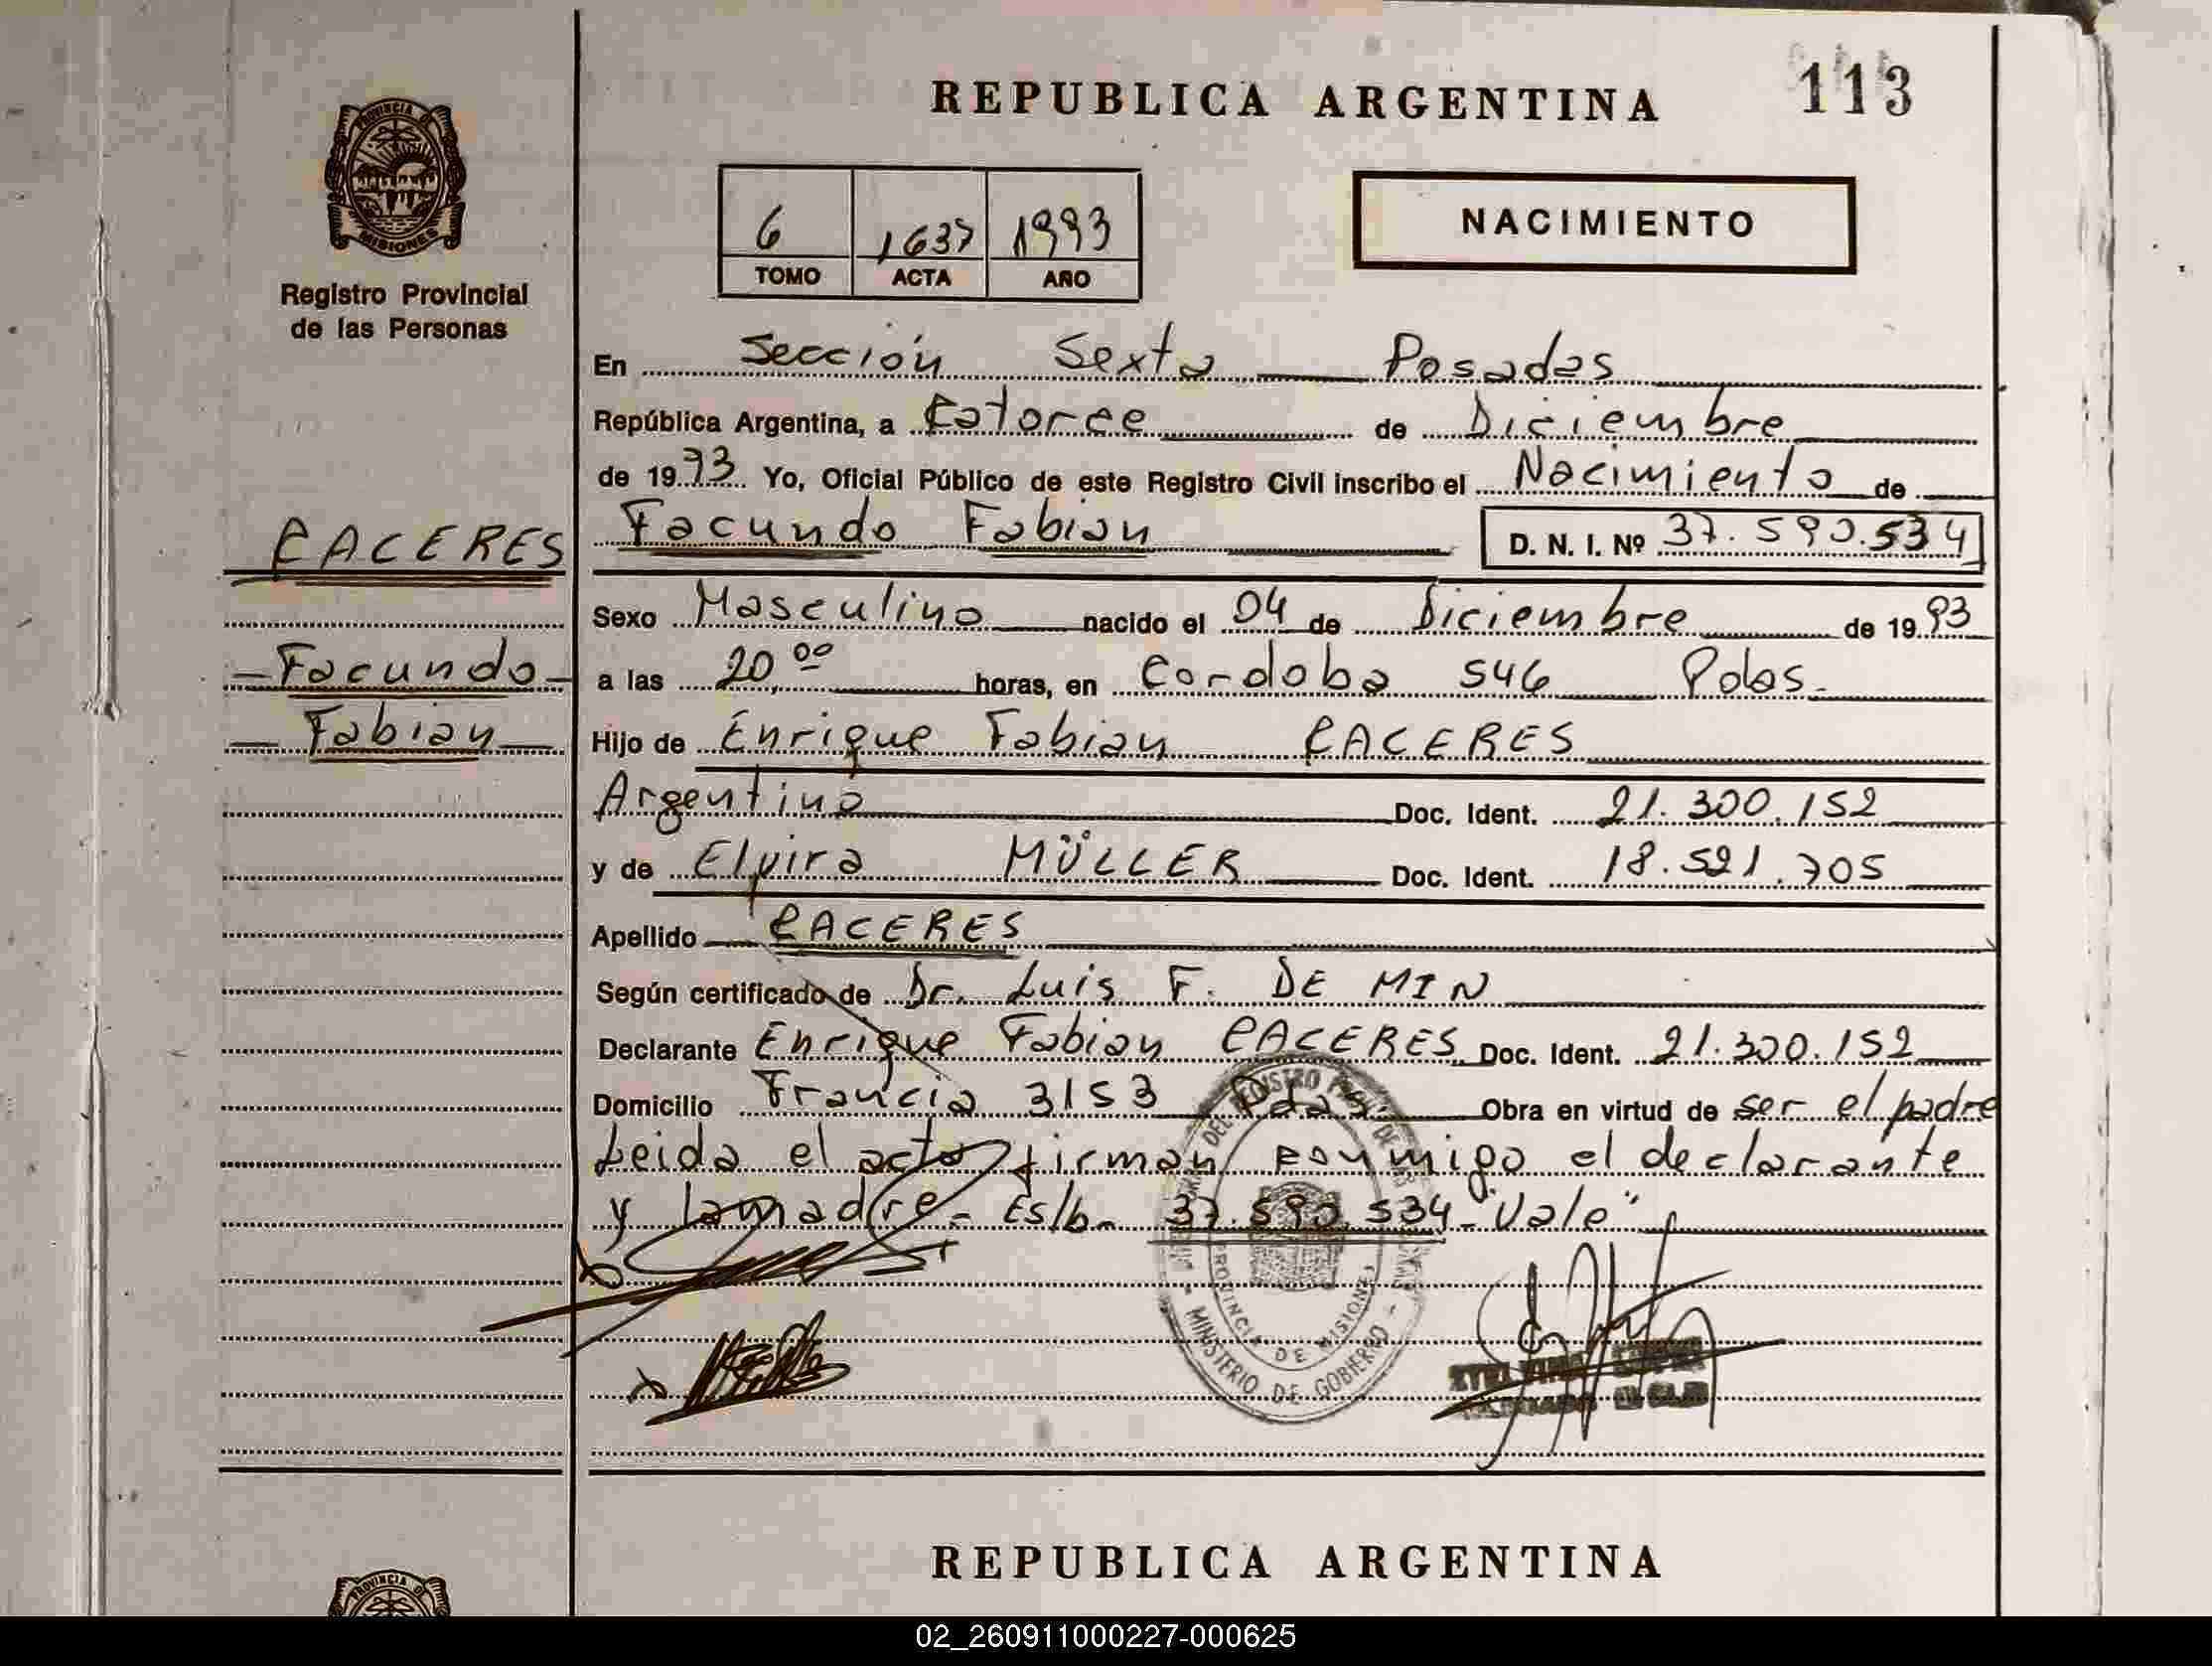 REPUBLICA ARGENTINA
113
PROVINCIA DE
MISIONES
Registro Provincial
de las Personas
6 1637 1993
TOMO ACTA AÑO
NACIMIENTO
En Sección Sexta Posadas
República Argentina, a Catorce de Diciembre
de 1993 Yo, Oficial Público de este Registro Civil inscribo el Nacimiento de
CACERES
Facundo Fabian D. N. I. Nº 37.590.534
Sexo Masculino nacido el 04 de Diciembre de 1993
Facundo
a las 20 00 horas, en Cordoba 546 Pdas.
Fabian
Hijo de Enrique Fabian CACERES
Argentino Doc. Ident. 21.300.152
y de Elvira MÜLLER Doc. Ident. 18.521.705
Apellido CACERES
Según certificado de Dr. Luis F. DE MIN
Declarante Enrique Fabian CACERES Doc. Ident. 21.300.152
Domicilio Francia 3153 Pdas. Obra en virtud de ser el padre
Leida el acta firman conmigo el declarante
y la madre.- Es/b- 37.590.534 "Vale"
PROVINCIA DE MISIONES
MINISTERIO DE GOBIERNO
REPUBLICA ARGENTINA
PROVINCIA D
02_260911000227-000625